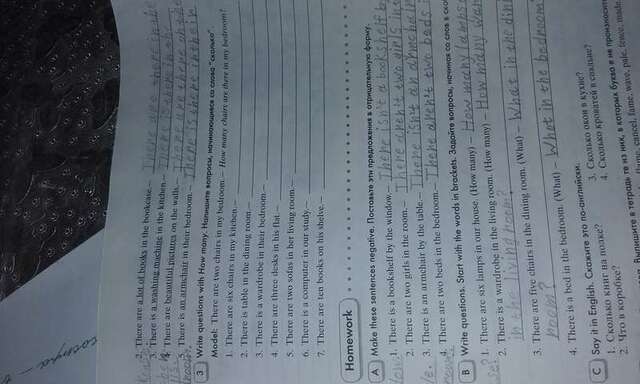 2. There are a lot of books in the bookcase. – There are there in the
3. There is a washing machine in the kitchen. – There is there in the
There are beautiful pictures on the walls. – There are there
There is an armchair in their bedroom. – There is there in their
3 Write questions with How many. Напишите вопросы, начинающиеся со слова "сколько"
Model: There are two chairs in my bedroom. – How many chairs are there in my bedroom?
1. There are six chairs in my kitchen. –
2. There is table in the dining room. –
3. There is a wardrobe in their bedroom. –
4. There are three desks in his flat. –
5. There are two sofas in her living room. –
6. There is a computer in our study. –
7. There are ten books on his shelve. –
Homework
A Make these sentences negative. Поставьте эти предложения в отрицательную форму.
1. There is a bookshelf by the window. – There isn't a bookshelf b
2. There are two girls in the room. – There aren't two girls in
3. There is an armchair by the table. – There isn't an armchair
4. There are two beds in the bedroom. – There aren't two beds i
B Write questions. Start with the words in brackets. Задайте вопросы, начиная со слов в ско
1. There are six lamps in our house. (How many) – How many lamps
2. There is a wardrobe in the living room. (How many) – How many war
in the living room?
3. There are five chairs in the dining room. (What) – What in the din
room?
4. There is a bed in the bedroom. (What) – What in the bedroom
C Say it in English. Скажите это по-английски.
1. Сколько книг на полке?
2. Что в коробке?
3. Сколько окон в кухне?
4. Сколько кроватей в спальне?
Выпишите в тетрадь те из них, в которых буква e не произносится
fame, wave, pale, fence, made